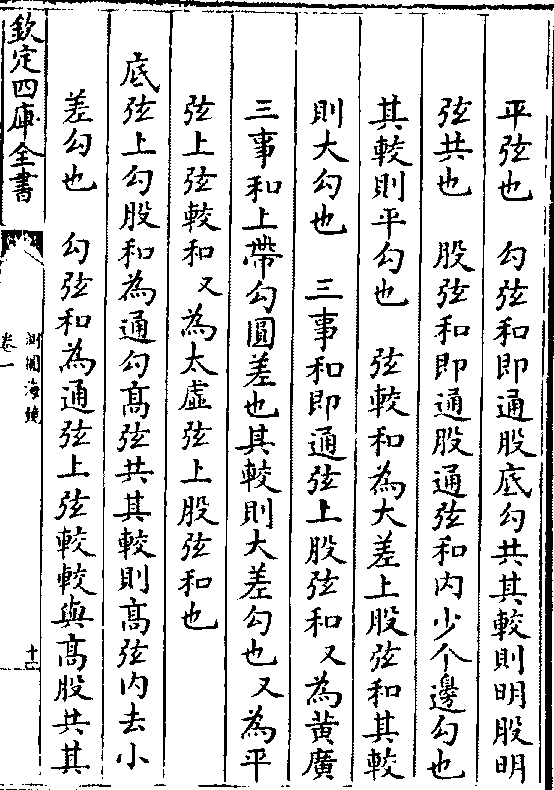 平弦也　勾弦和即通股底勾共其較則明股明
弦共也　股弦和即通股通弦和内少个邊勾也
其較則平勾也　弦較和為大差上股弦和其較
則大勾也　三事和即通弦上股弦和又為黄廣
三事和上帶勾圓差也其較則大差勾也又為平
弦上弦較和又為太虚弦上股弦和也
底弦上勾股和為通勾髙弦共其較則髙弦内去小
差勾也　勾弦和為通弦上弦較較與髙股共其
欽定四庫全書
測圓海鏡
卷一
十二